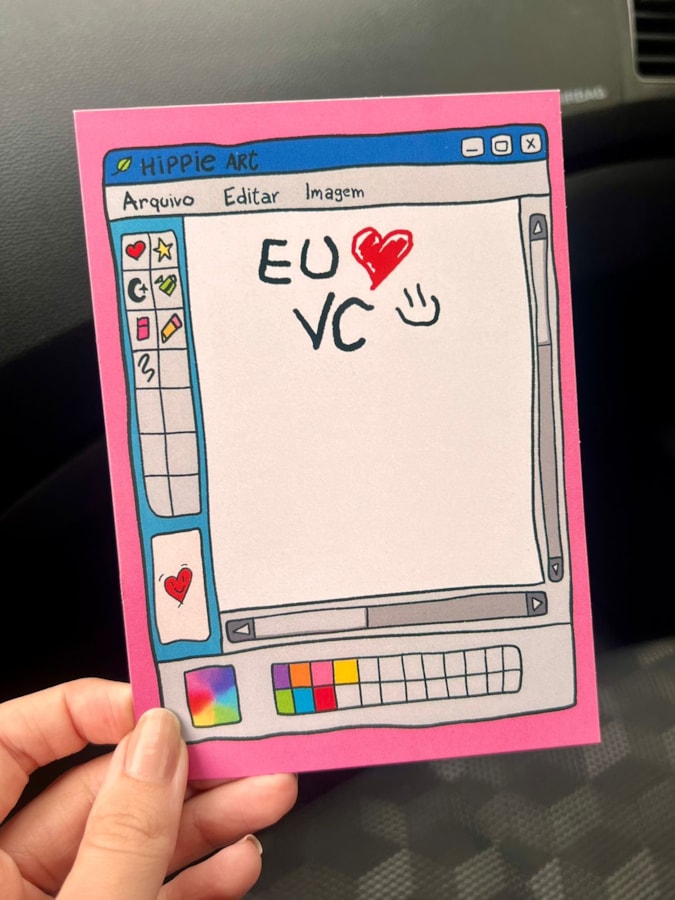 HiPPie ART
Arquivo Editar Imagem
EU
VC
AIRBAG